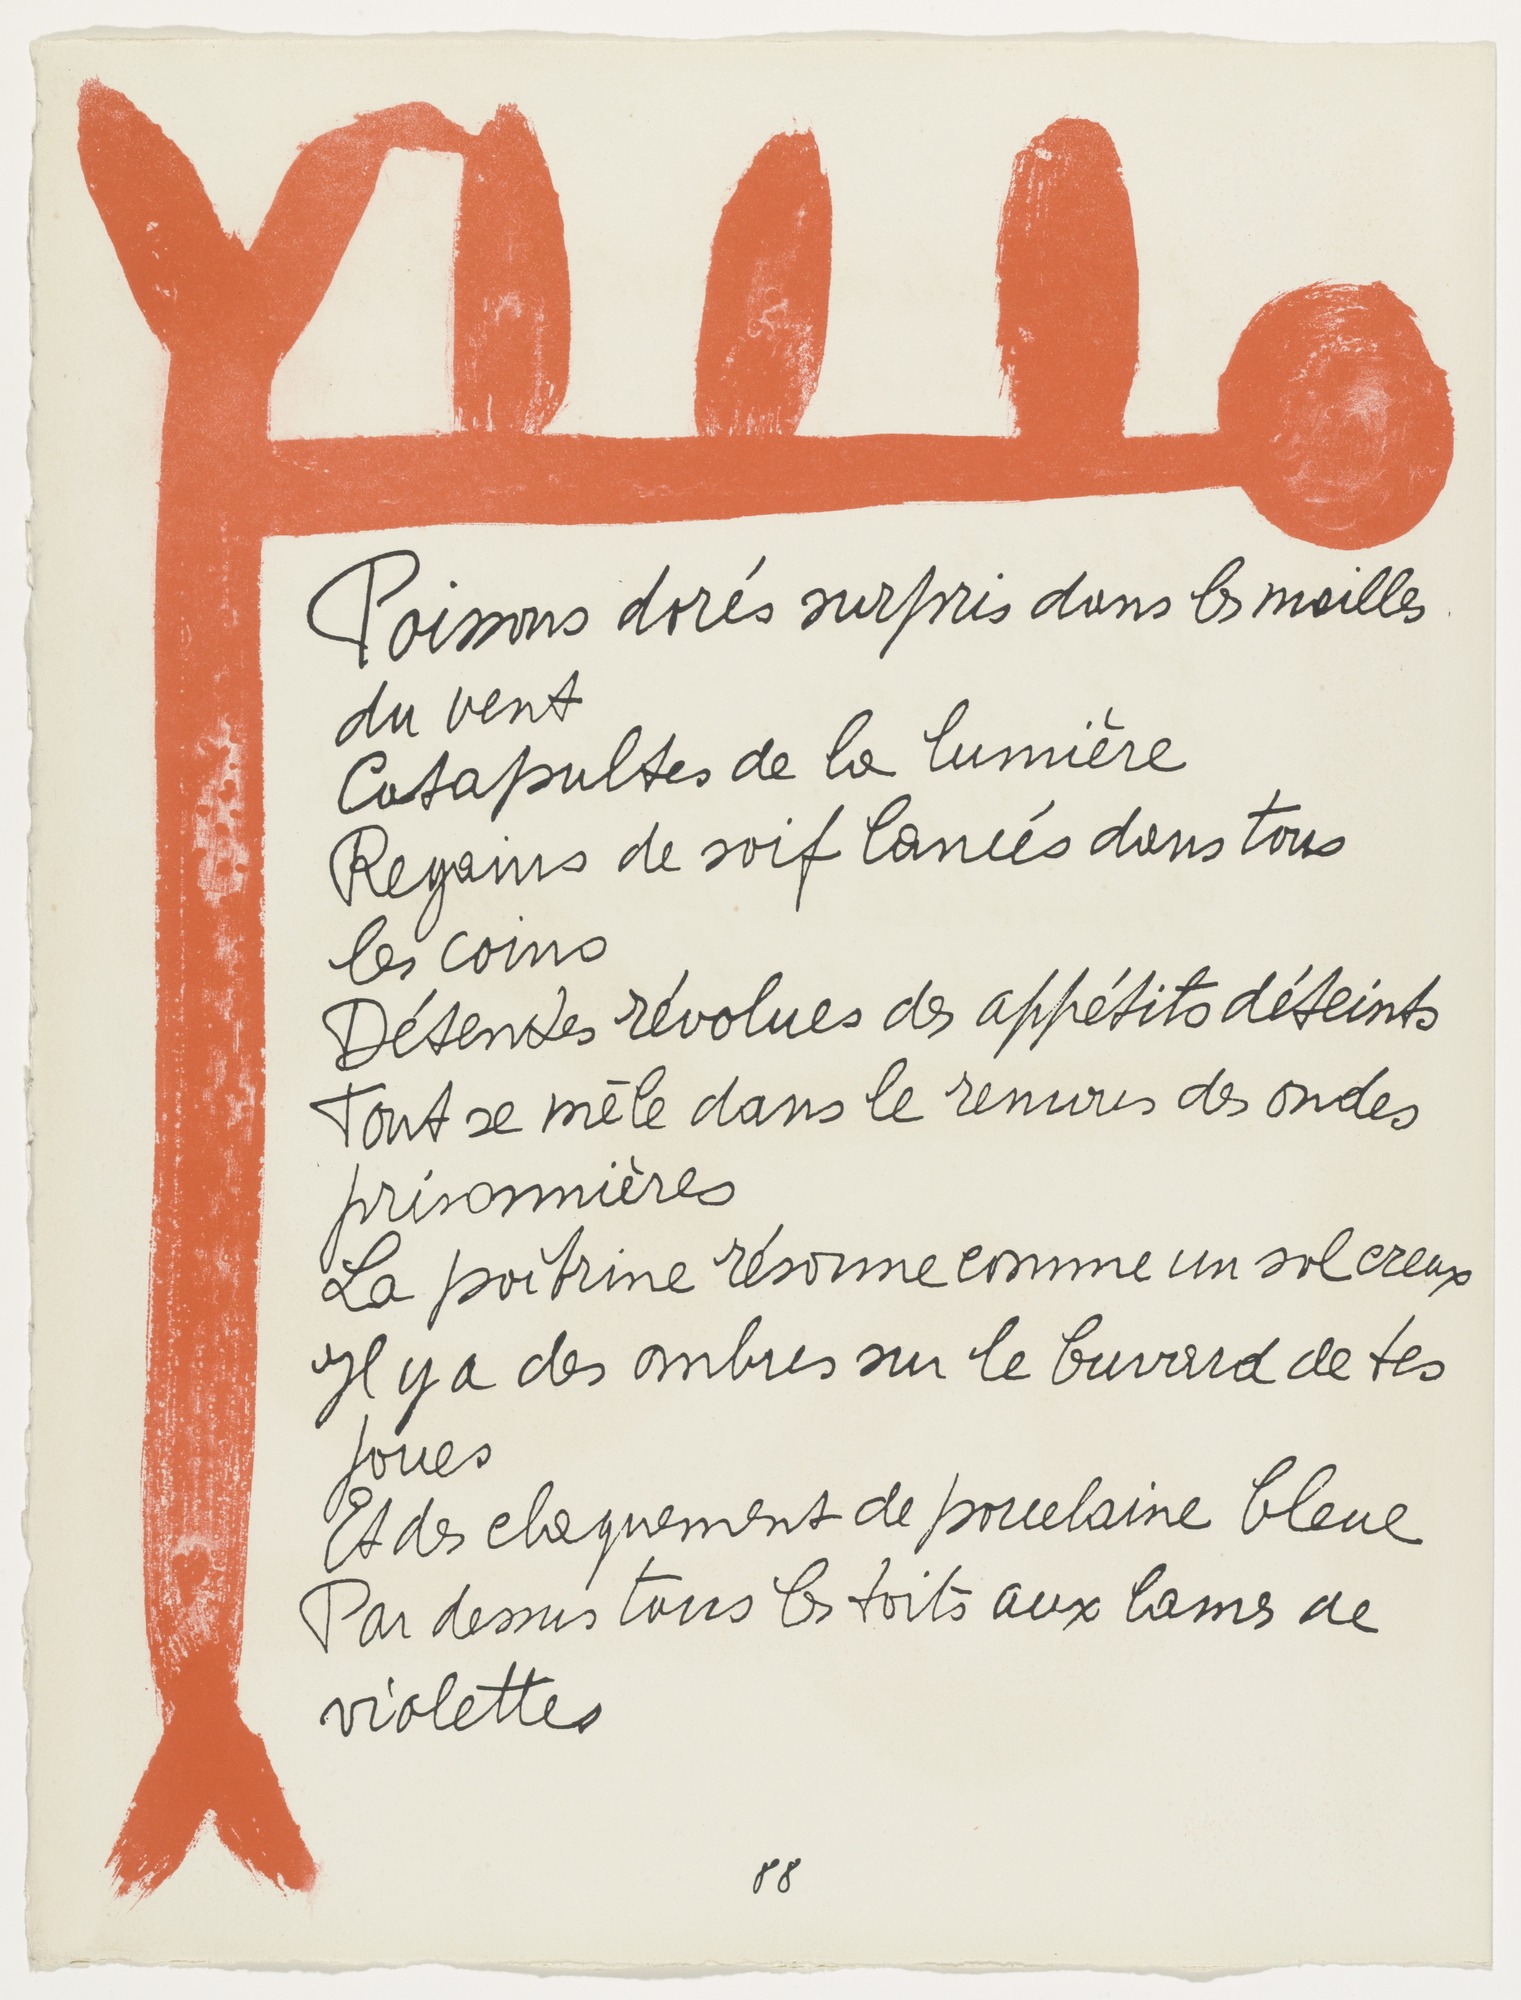 Poissons dorés surpris dans les mailles
du vent
Catapultes de la lumière
Regains de soif lancés dans tous
les coins
Détentes révolues des appétits déteints
Tout se mêle dans le remous des ondes
prisonnières
La poitrine résonne comme un sol creux
Il y a des ombres sur le buvard de tes
joues
Et des claquement de porcelaine bleue
Par dessus tous les toits aux lames de
violettes
88